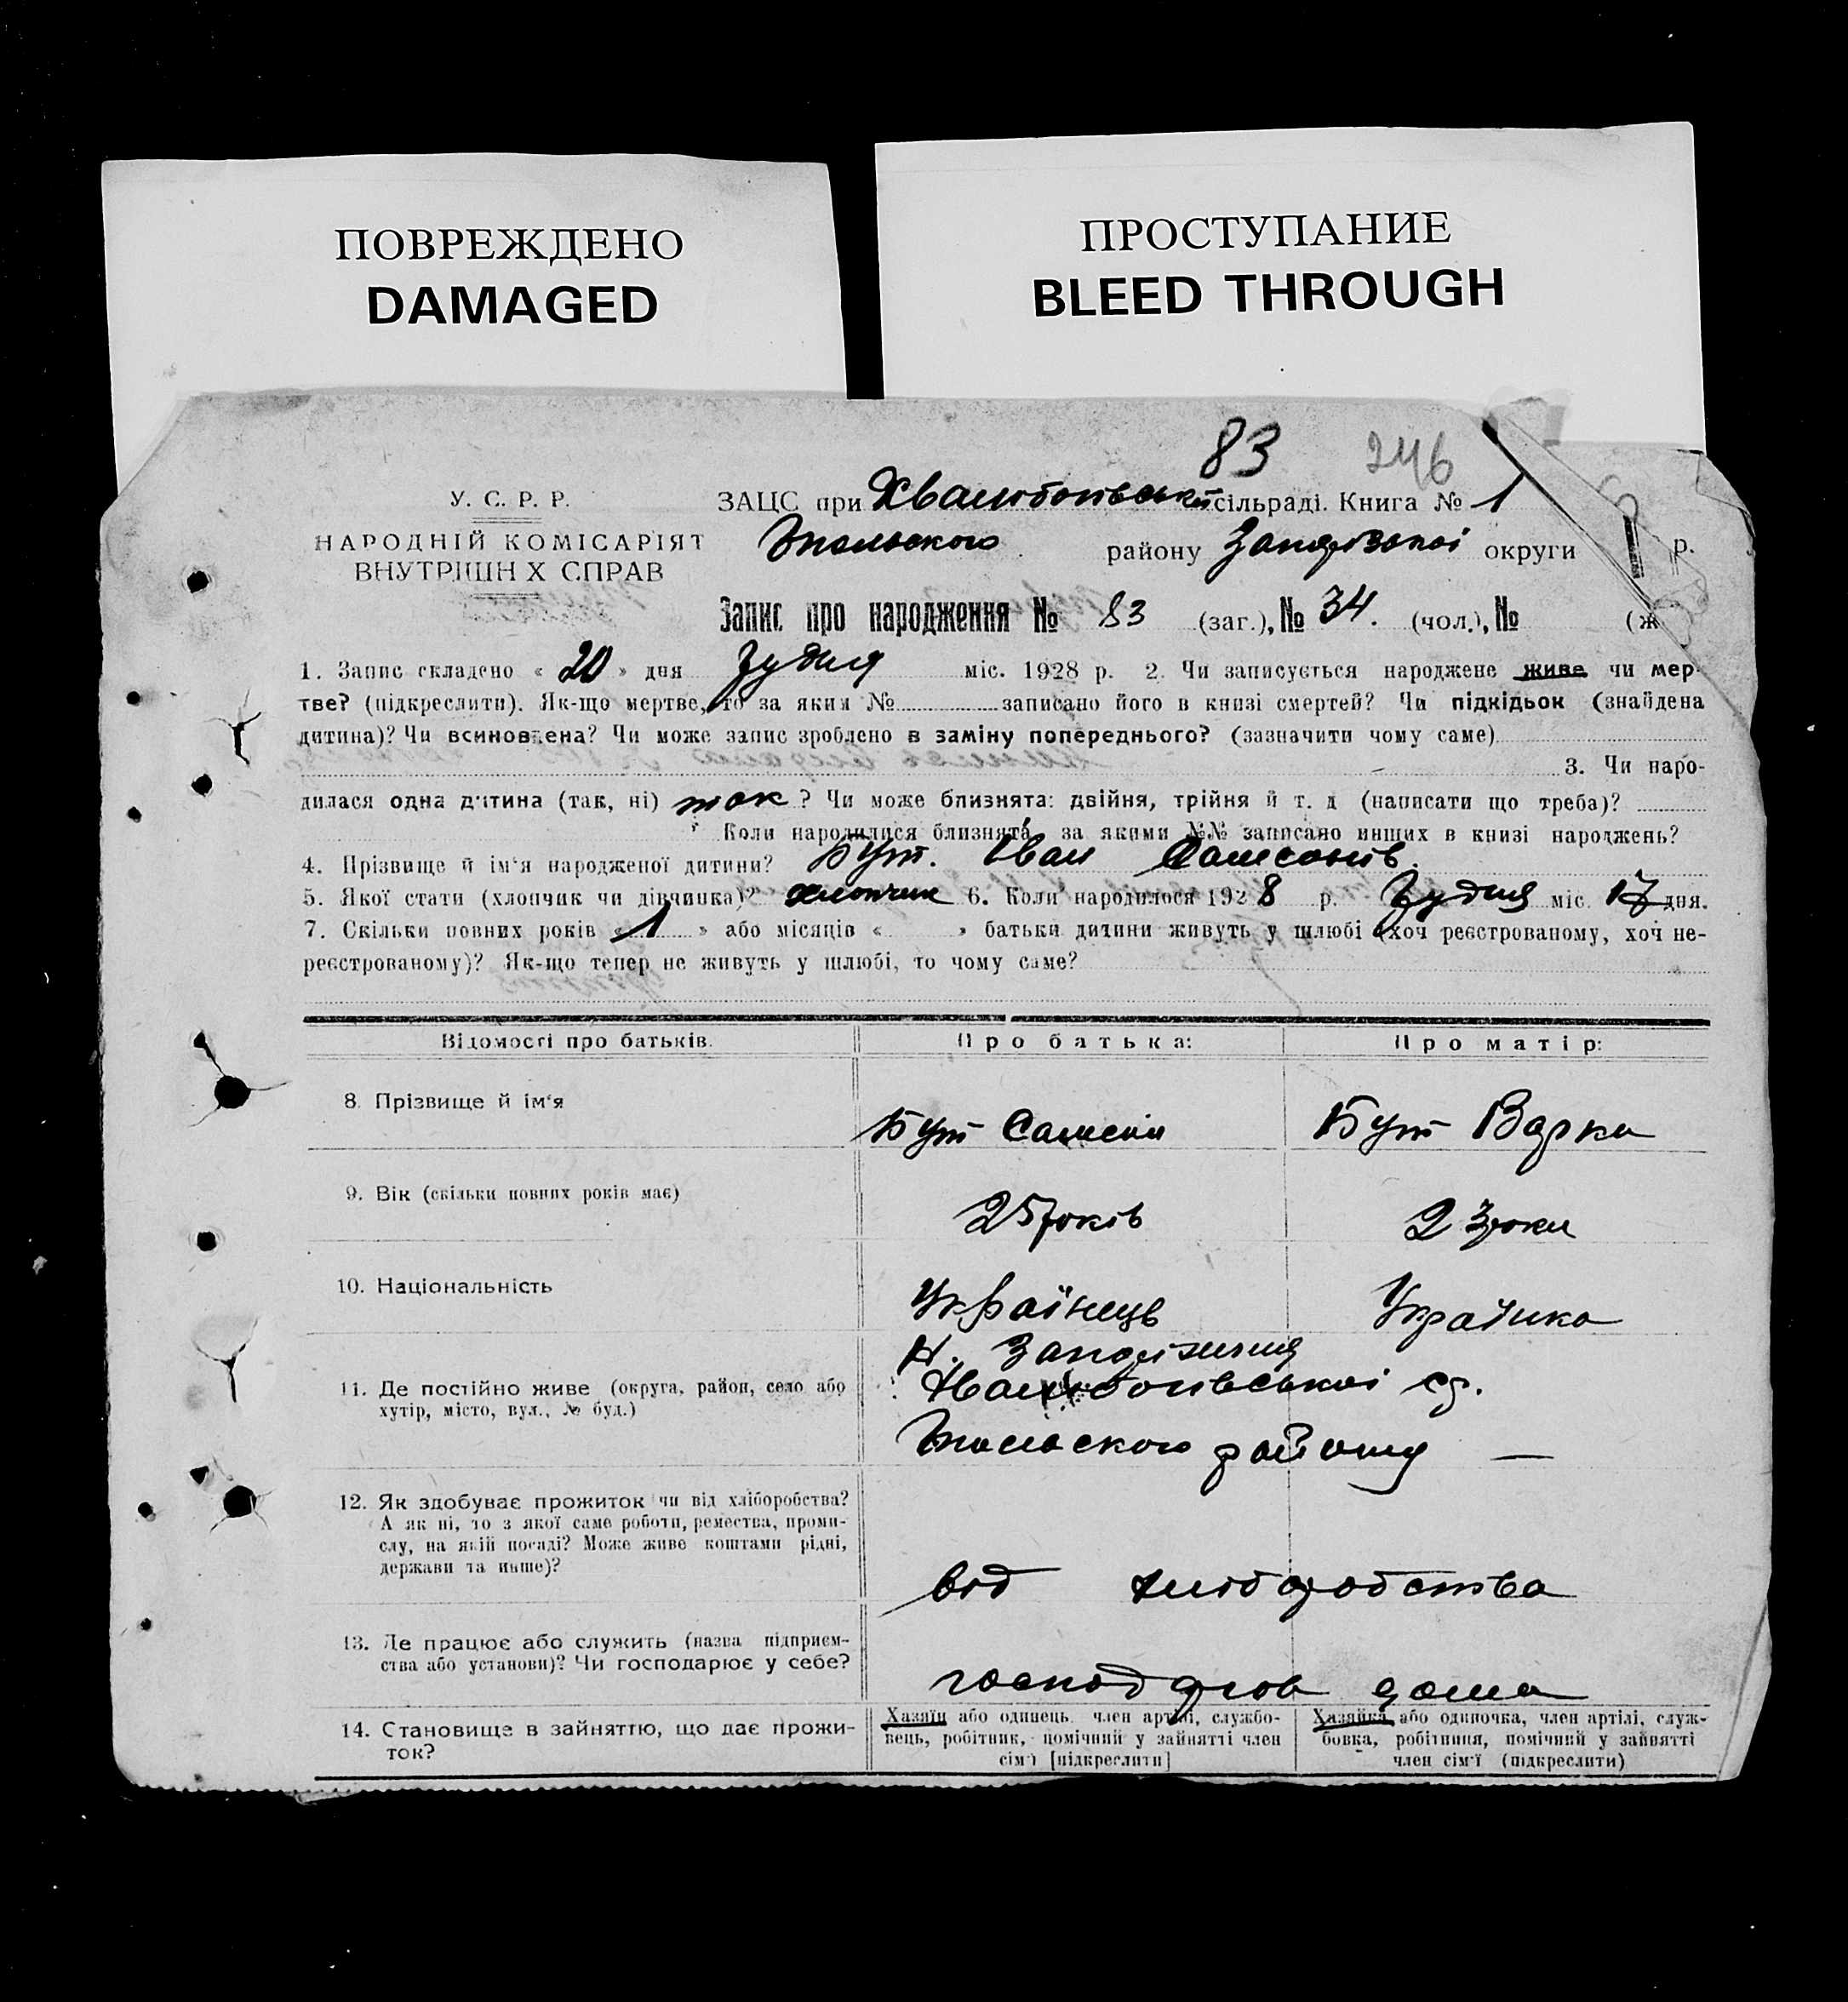 ПОВРЕЖДЕНО
DAMAGED
ПРОСТУПАНИЕ
BLEED THROUGH
83 246
У. С. Р. Р.
НАРОДНІЙ КОМІСАРІЯТ
ВНУТРІШН Х СПРАВ
ЗАЦС при сільраді. Книга № 1
району округи р.
Запис про народження № 83 (заг.), № 34. (чол.), № (ж
1. Запис складено « 20 » дня Грудня міс. 1928 р. 2. Чи записується народжене живе чи мер-
тве? (підкреслити). Як-що мертве, то за яким № записано його в книзі смертей? Чи підкідьок (знайдена
дитина)? Чи всиновлена? Чи може запис зроблено в заміну попереднього? (зазначити чому саме)
3. Чи наро-
дилася одна дитина (так, ні) так ? Чи може близнята: двійня, трійня й т. д (написати що треба)?
Коли народилися близнята, за якими №№ записано инших в книзі народжень?
4. Прізвище й ім'я народженої дитини? Бут. Іван Самсонів.
5. Якої стати (хлопчик чи дівчинка)? хлопчик 6. Коли народилося 1928 р. Грудня міс. 17 дня.
7. Скільки повних років « 1 » або місяців « » батьки дитини живуть у шлюбі (хоч реєстрованому, хоч не-
реєстрованому)? Як-що тепер не живуть у шлюбі, то чому саме?
Відомості про батьків. Про батька: Про матір:
8. Прізвище й ім'я Бут Самсон Бут Варка
9. Вік (скільки повних років має) 25 років 23 роки
10. Національність Українець Українка
11. Де постійно живе (округа, район, село або
хутір, місто, вул., № буд.)
району —
12. Як здобуває прожиток чи від хліборобства?
А як ні, то з якої саме роботи, ремества, проми-
слу, на якій посаді? Може живе коштами рідні,
держави та инше)?
від хліборобства
13. Де працює або служить (назва підприєм-
ства або установи)? Чи господарює у себе?
дома
14. Становище в зайняттю, що дає прожи-
ток?
Хазяїн або одинець, член артілі, службо-
вець, робітник, помічний у зайнятті член
сім'ї [підкреслити]
Хазяйка або одиночка, член артілі, служ-
бовка, робітниця, помічний у зайнятті
член сім'ї (підкреслити)